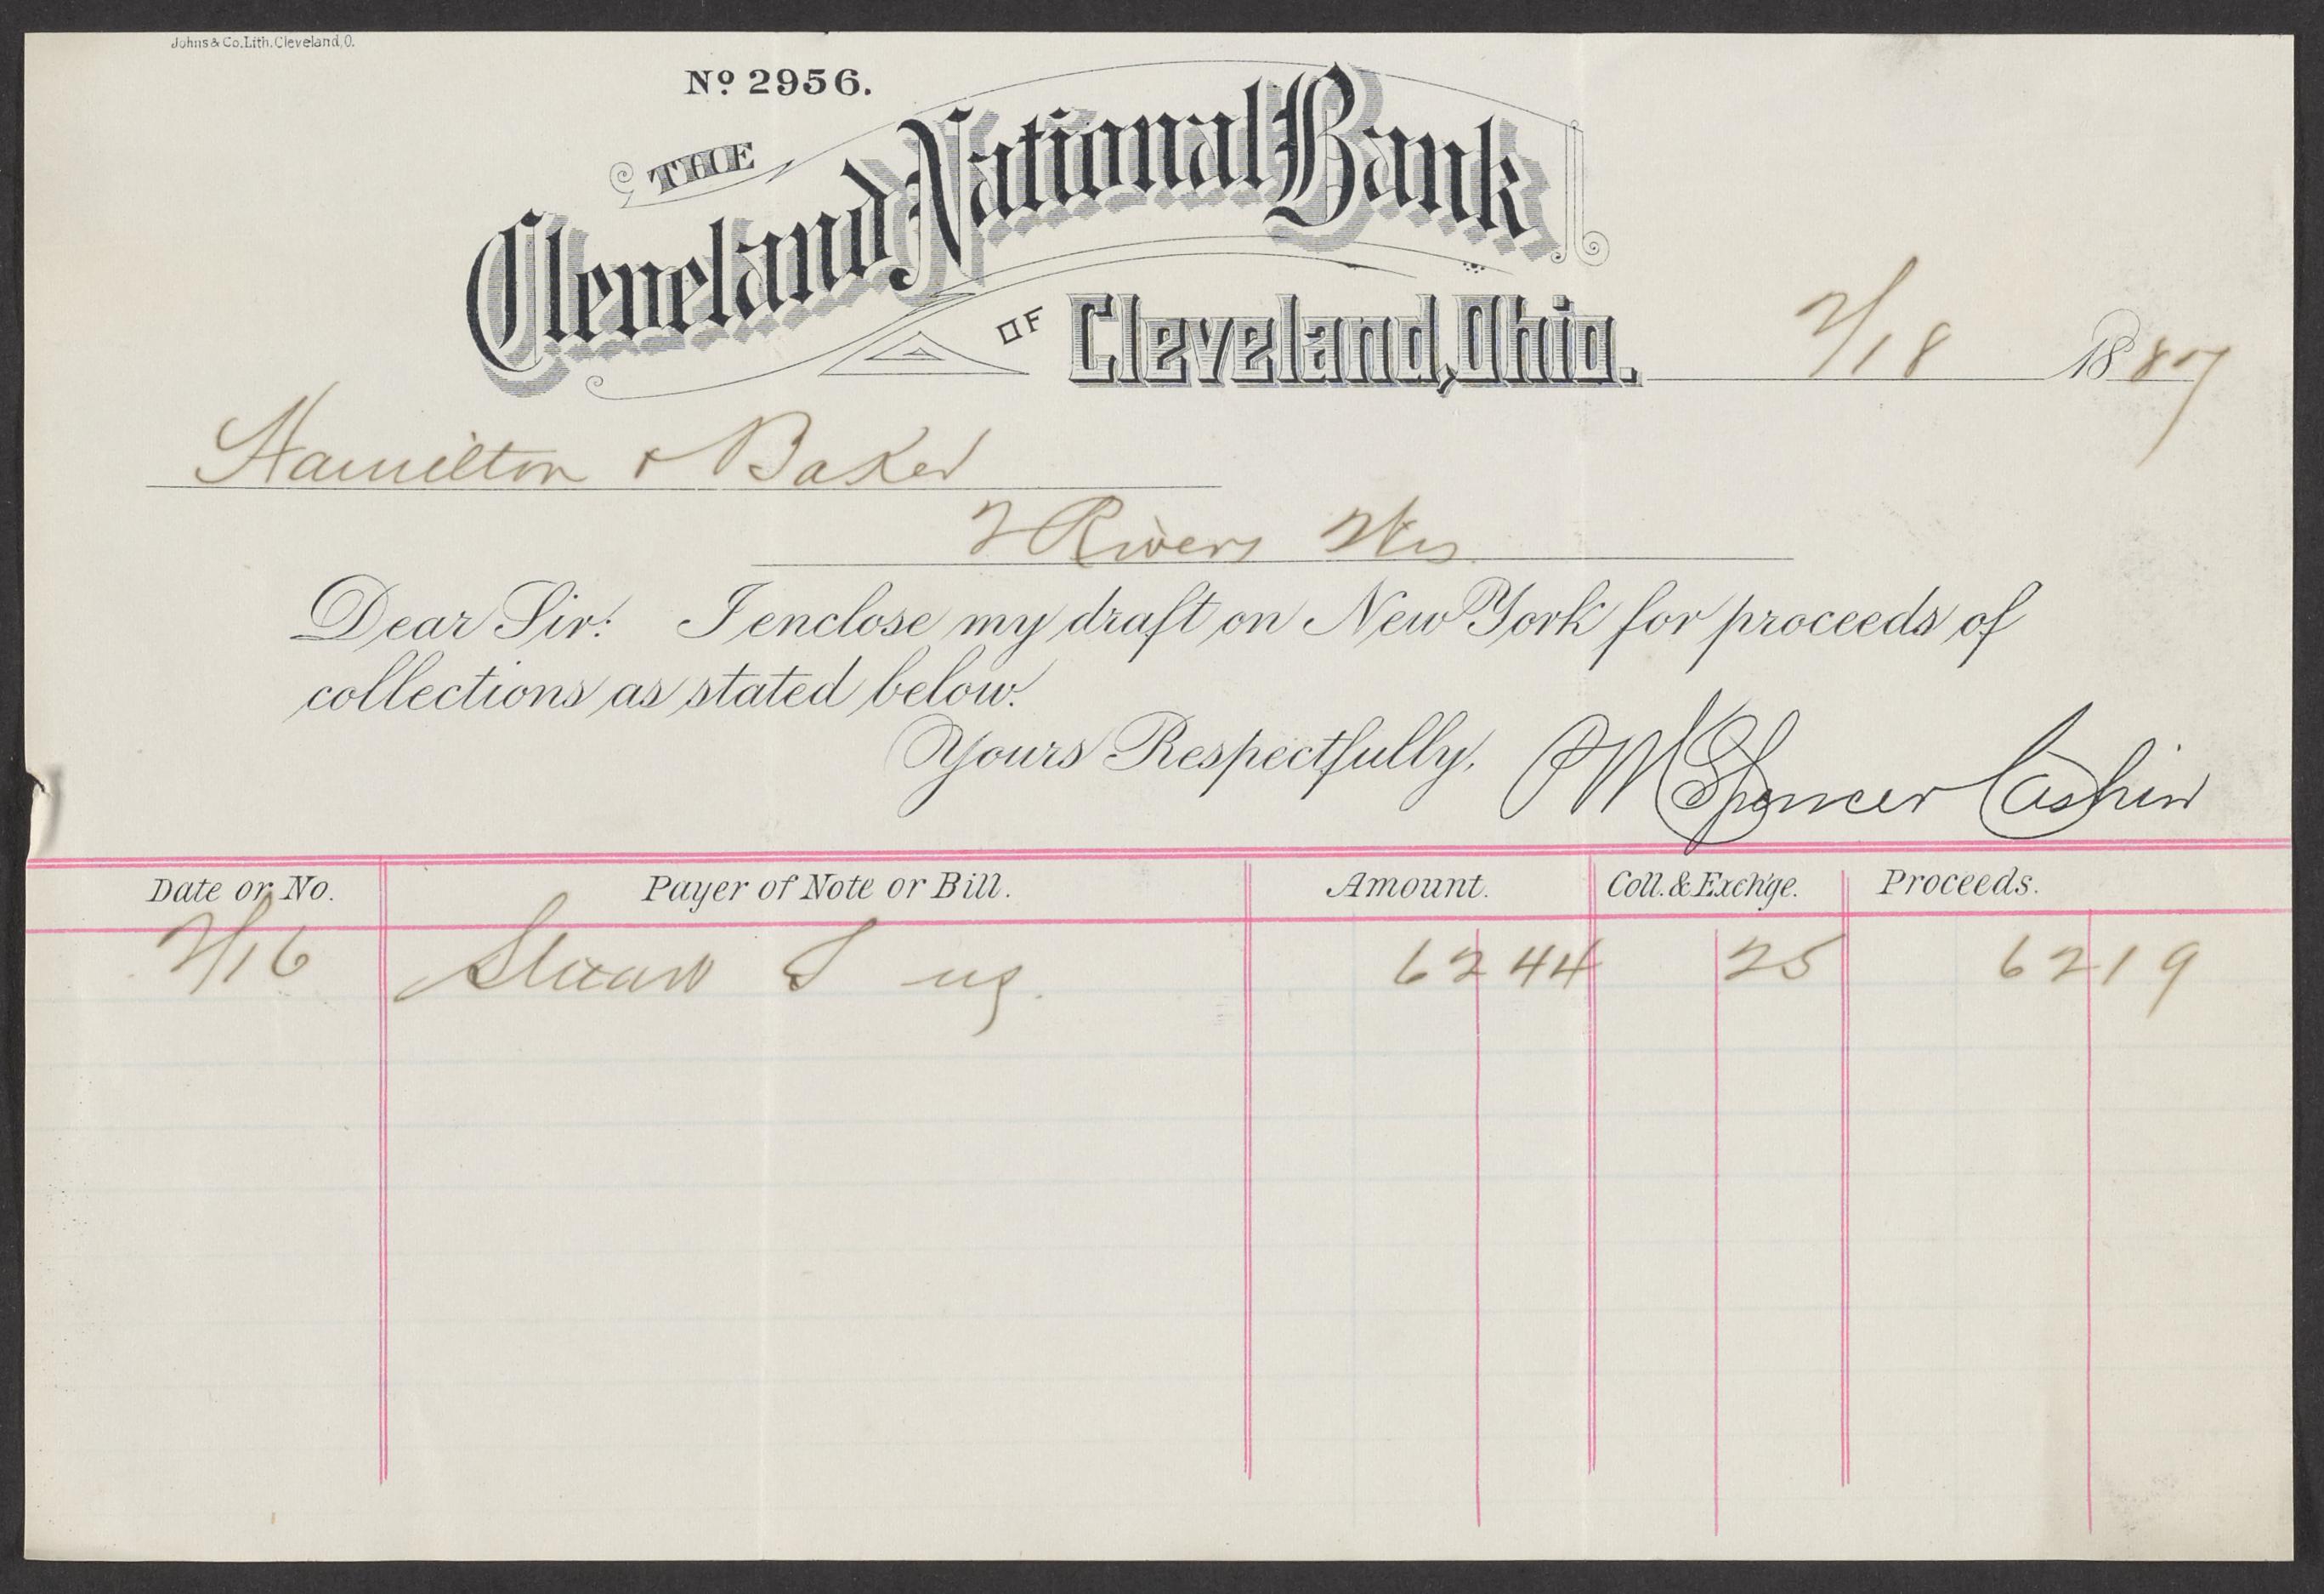 Johns & Co. Lith. Cleveland, O.
No 2956.
THE
Cleveland National Bank
OF Cleveland, Ohio. 2/18 1887
Hamilton & Baker
2 Rivers Wis
Dear Sir: I enclose my draft on New York for proceeds of
collections as stated below.
Yours Respectfully, P M Spencer Cashier
Date or No. Payer of Note or Bill. Amount. Coll. & Exch'ge. Proceeds.
2/16 62 44 25 62 19